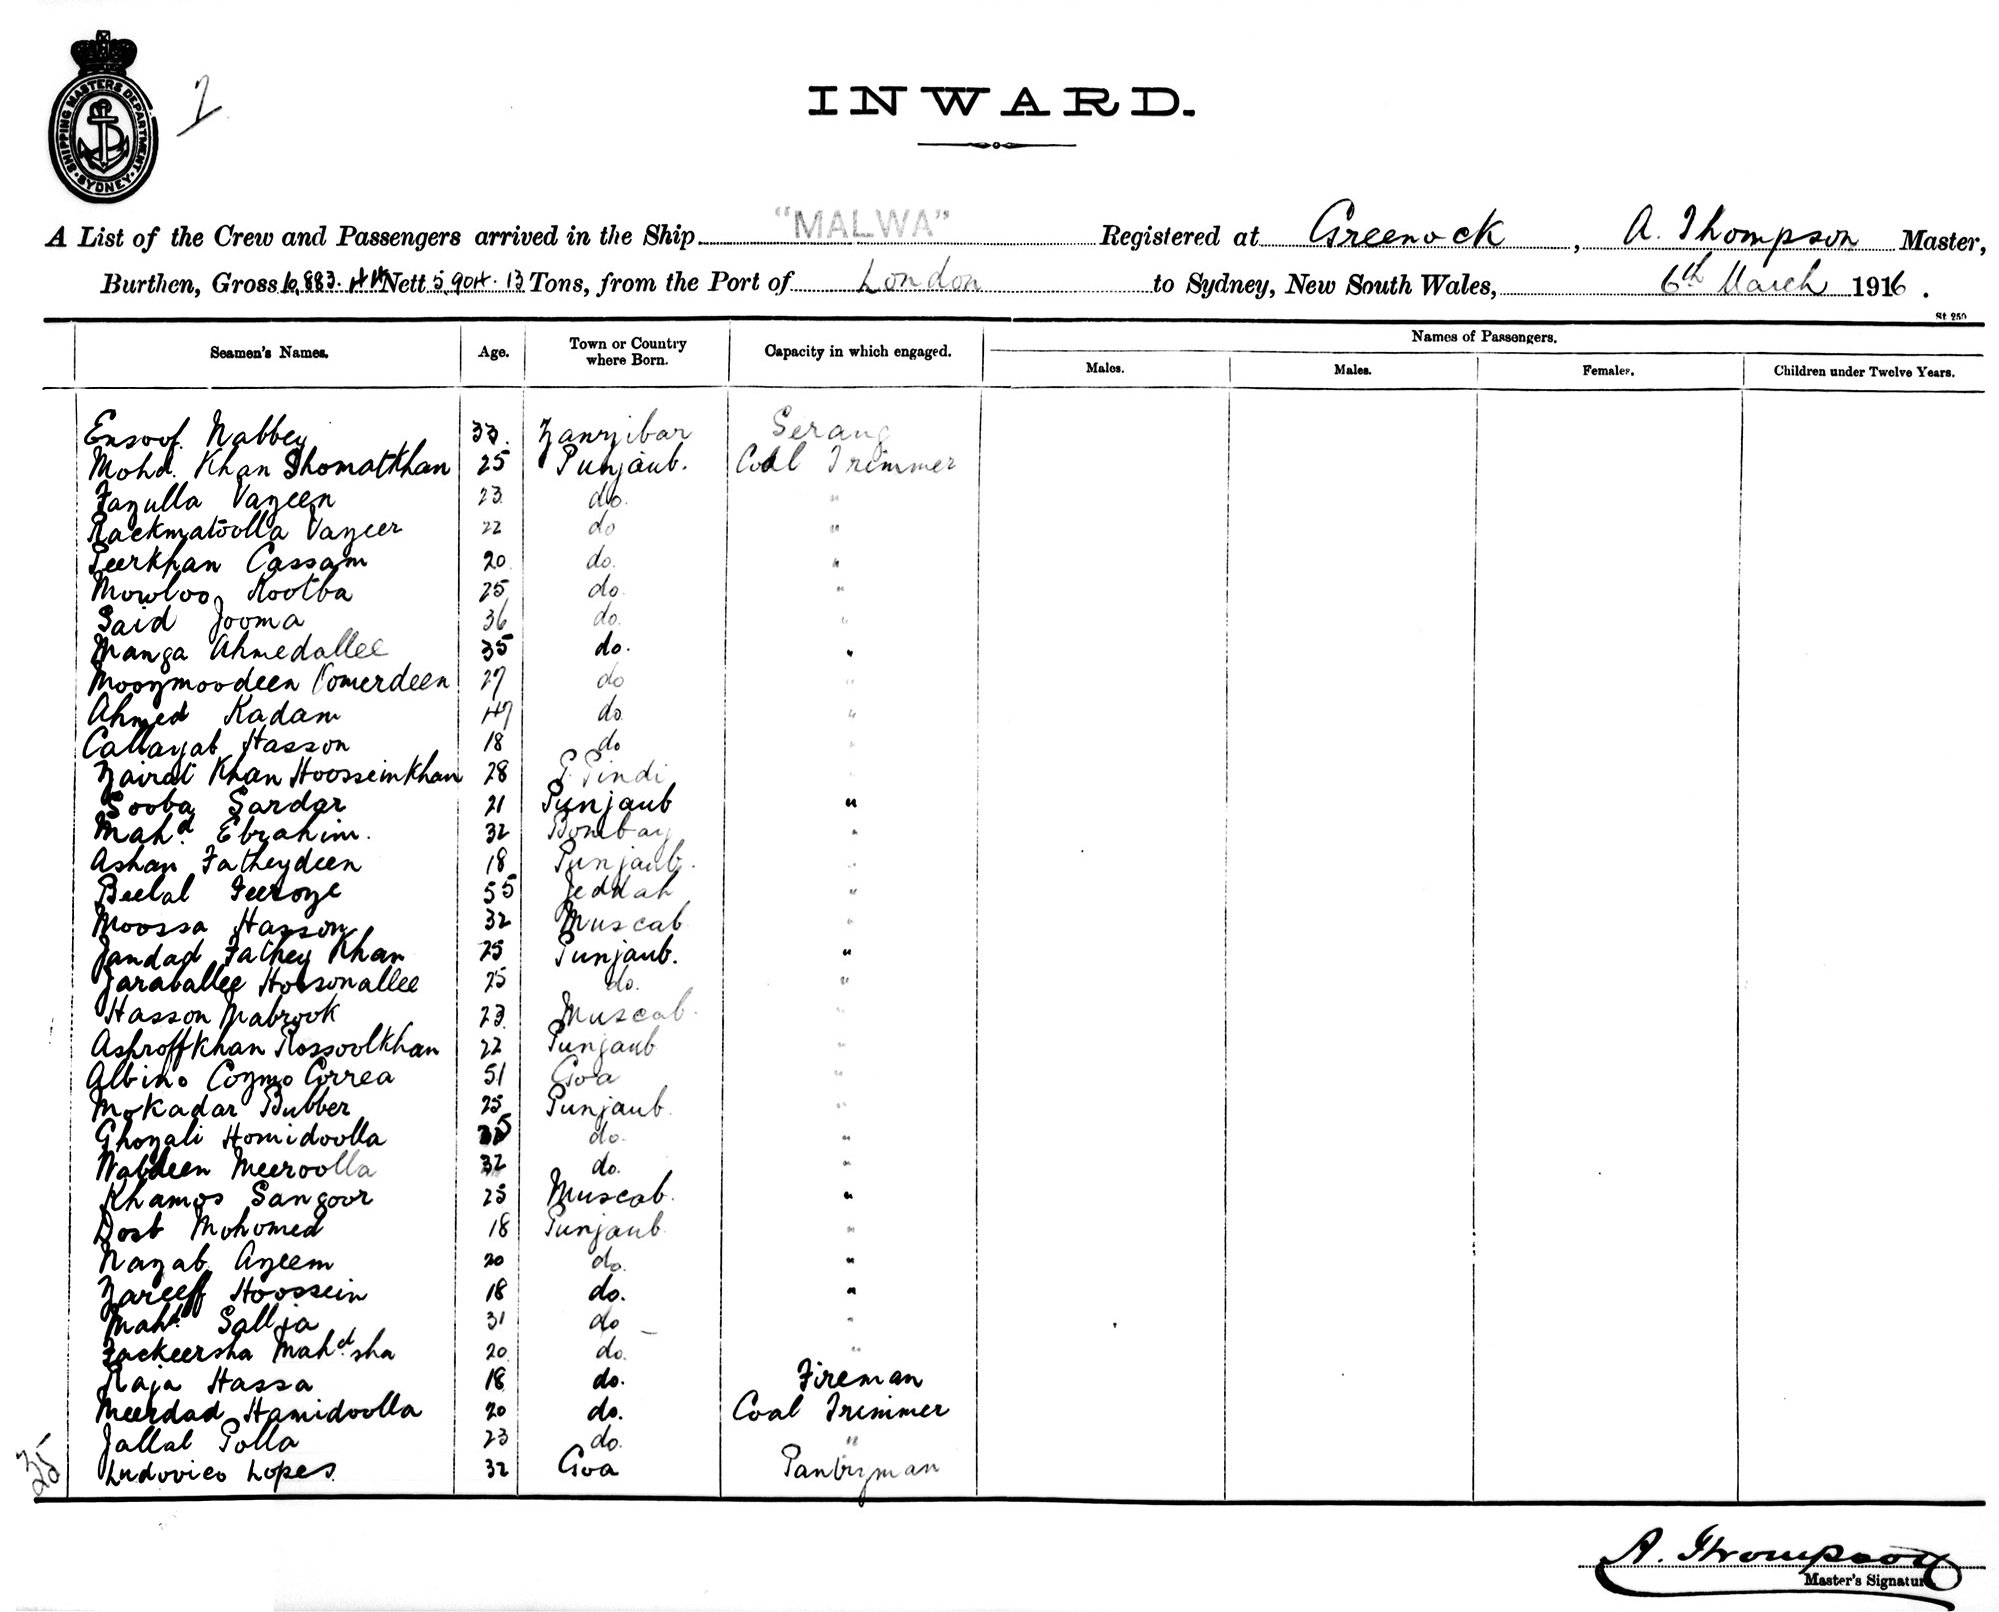 SHIPPING MASTERS DEPARTMENT.
SYDNEY.
2
INWARD.
A List of the Crew and Passengers arrived in the Ship "MALWA" Registered at Greenock, A. Thompson Master,
Burthen, Gross 10,883.44 Nett 5,904.13 Tons, from the Port of London to Sydney, New South Wales, 6th March 1916.
St 250
Seamen's Names. Age. Town or Country where Born. Capacity in which engaged. Names of Passengers.
Males. Males. Females. Children under Twelve Years.
Ensoof Nabbey 33. Zanzibar Serang
Mohd. Khan Shomatkhan 25 Punjaub. Coal Trimmer
Fazulla Vazeen 23 do. "
Rackmatoolla Vazeer 22 do "
Peerkhan Cassam 20. do. "
Mowloo Kootba 25 do. "
Said Jooma 36 do. "
Manga Ahmedallee 35 do. "
Moozmoodeen Comerdeen 27 do "
Ahmed Kadam 47 do. "
Callayat Hasson 18 do "
Zairat Khan Hoosseinkhan 28 P. Pindi "
Sooba Sardar 21 Punjaub "
Mahd. Ebrahim. 32 Bombay "
Ashan Fatheydeen 18 Punjaub. "
Beelal Feeroze 55 Jeddah "
Moossa Hasson 32 Muscat "
Jandad Fathey Khan 25 Punjaub. "
Jaraballee Hossonallee 25 do. "
Hasson Mabrook 23. Muscat. "
Ashroffkhan Rossoolkhan 22 Punjaub "
Albino Cozmo Correa 51 Goa "
Mokadar Bubber 25 Punjaub. "
Ghozali Homidoolla 35 do. "
Nabdeen Meeroolla 32 do. "
Khamos Sangoor 25 Muscat. "
Dost Mohomed 18 Punjaub. "
Nazab Azeem 20 do. "
Zareeff Hoossein 18 do. "
Mahd. Sallia 31 do "
Fackeersha Mahd. sha 20. do. "
Raja Hassa 18 do. Fireman
Meerdad Hamidoolla 20 do. Coal Trimmer
Jallal Polla 23 do. "
35 Ludovico Lopes. 32 Goa Pantryman
A. Thompson
Master's Signature